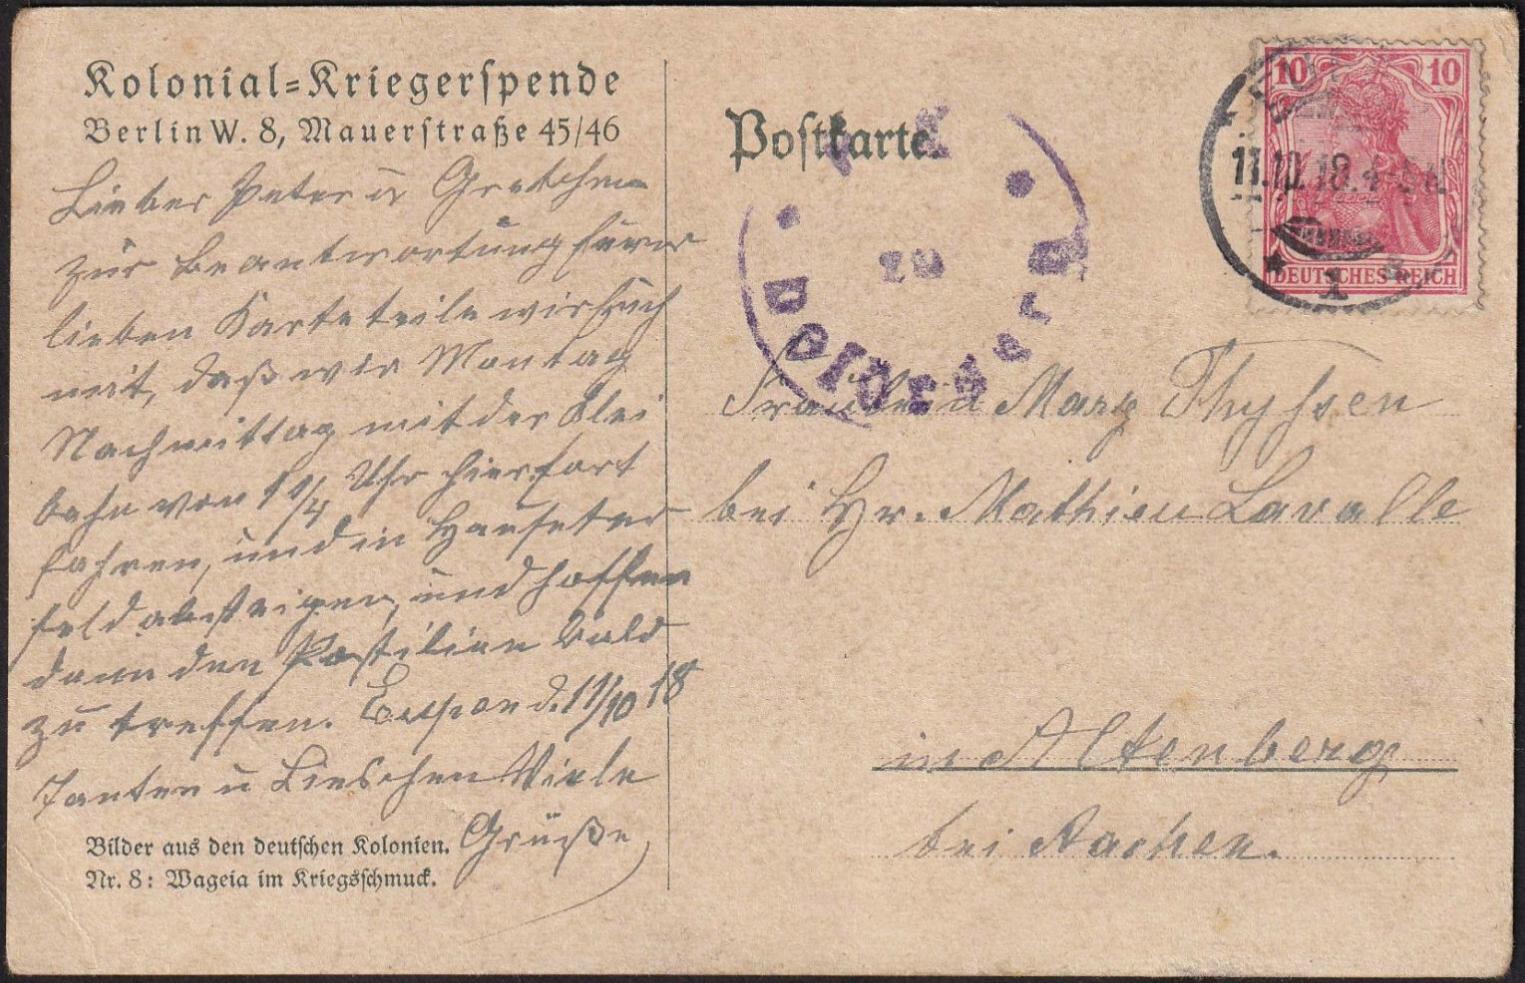 Kolonial=Kriegerspende
Berlin W. 8, Mauerstraße 45/46
Lieber Peter u Gretchen
zur Beantwortung Eurer
lieben Karte teile wir Euch
mit, daß wir Montag
Nachmittag mit der Klei
bahn von 1 1/4 Uhr hier fort
fahren, und in Hauseter
feld absteigen, und hoffen
dann den Postilion bald
zu treffen. Eupen d. 11/10 18
Tanten u Lieschen Viele
Grüße
Bilder aus den deutschen Kolonien.
Nr. 8: Wageia im Kriegsschmuck.
Postkarte
10 10
11.10.18. 4-5 N
* 1 *
DEUTSCHES REICH
Fräulein Marg Thyssen
bei Hr. Mathieu Lavalle
in Altenberg
bei Aachen.